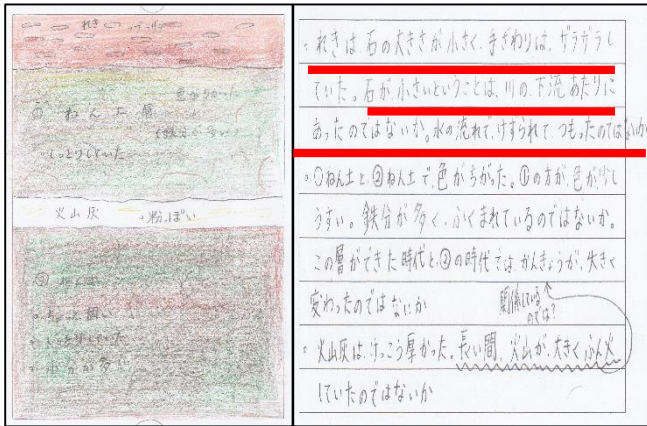 れき
①ねん土層
色がちがった
(鉄分が多い)
しっとりしていた
火山灰 ・粉っぽい
②ねん土
しっとりしていた
水分が多い
・れきは石の大きさが小さく、手ざわりは、ザラザラし
ていた。石が小さいということは、川の下流あたりに
あったのではないか。水の流れで、けずられて、つもったのではないか
・①ねん土と、②ねん土で、色がちがった。①の方が、色が少し
うすい。鉄分が多く、ふくまれているのではないか。
この層ができた時代と、②の時代では、かんきょうが、大きく
変わったのではないか
関係している
のでは?
・火山灰は、けっこう厚かった。長い間、火山が、大きくふん火
していたのではないか